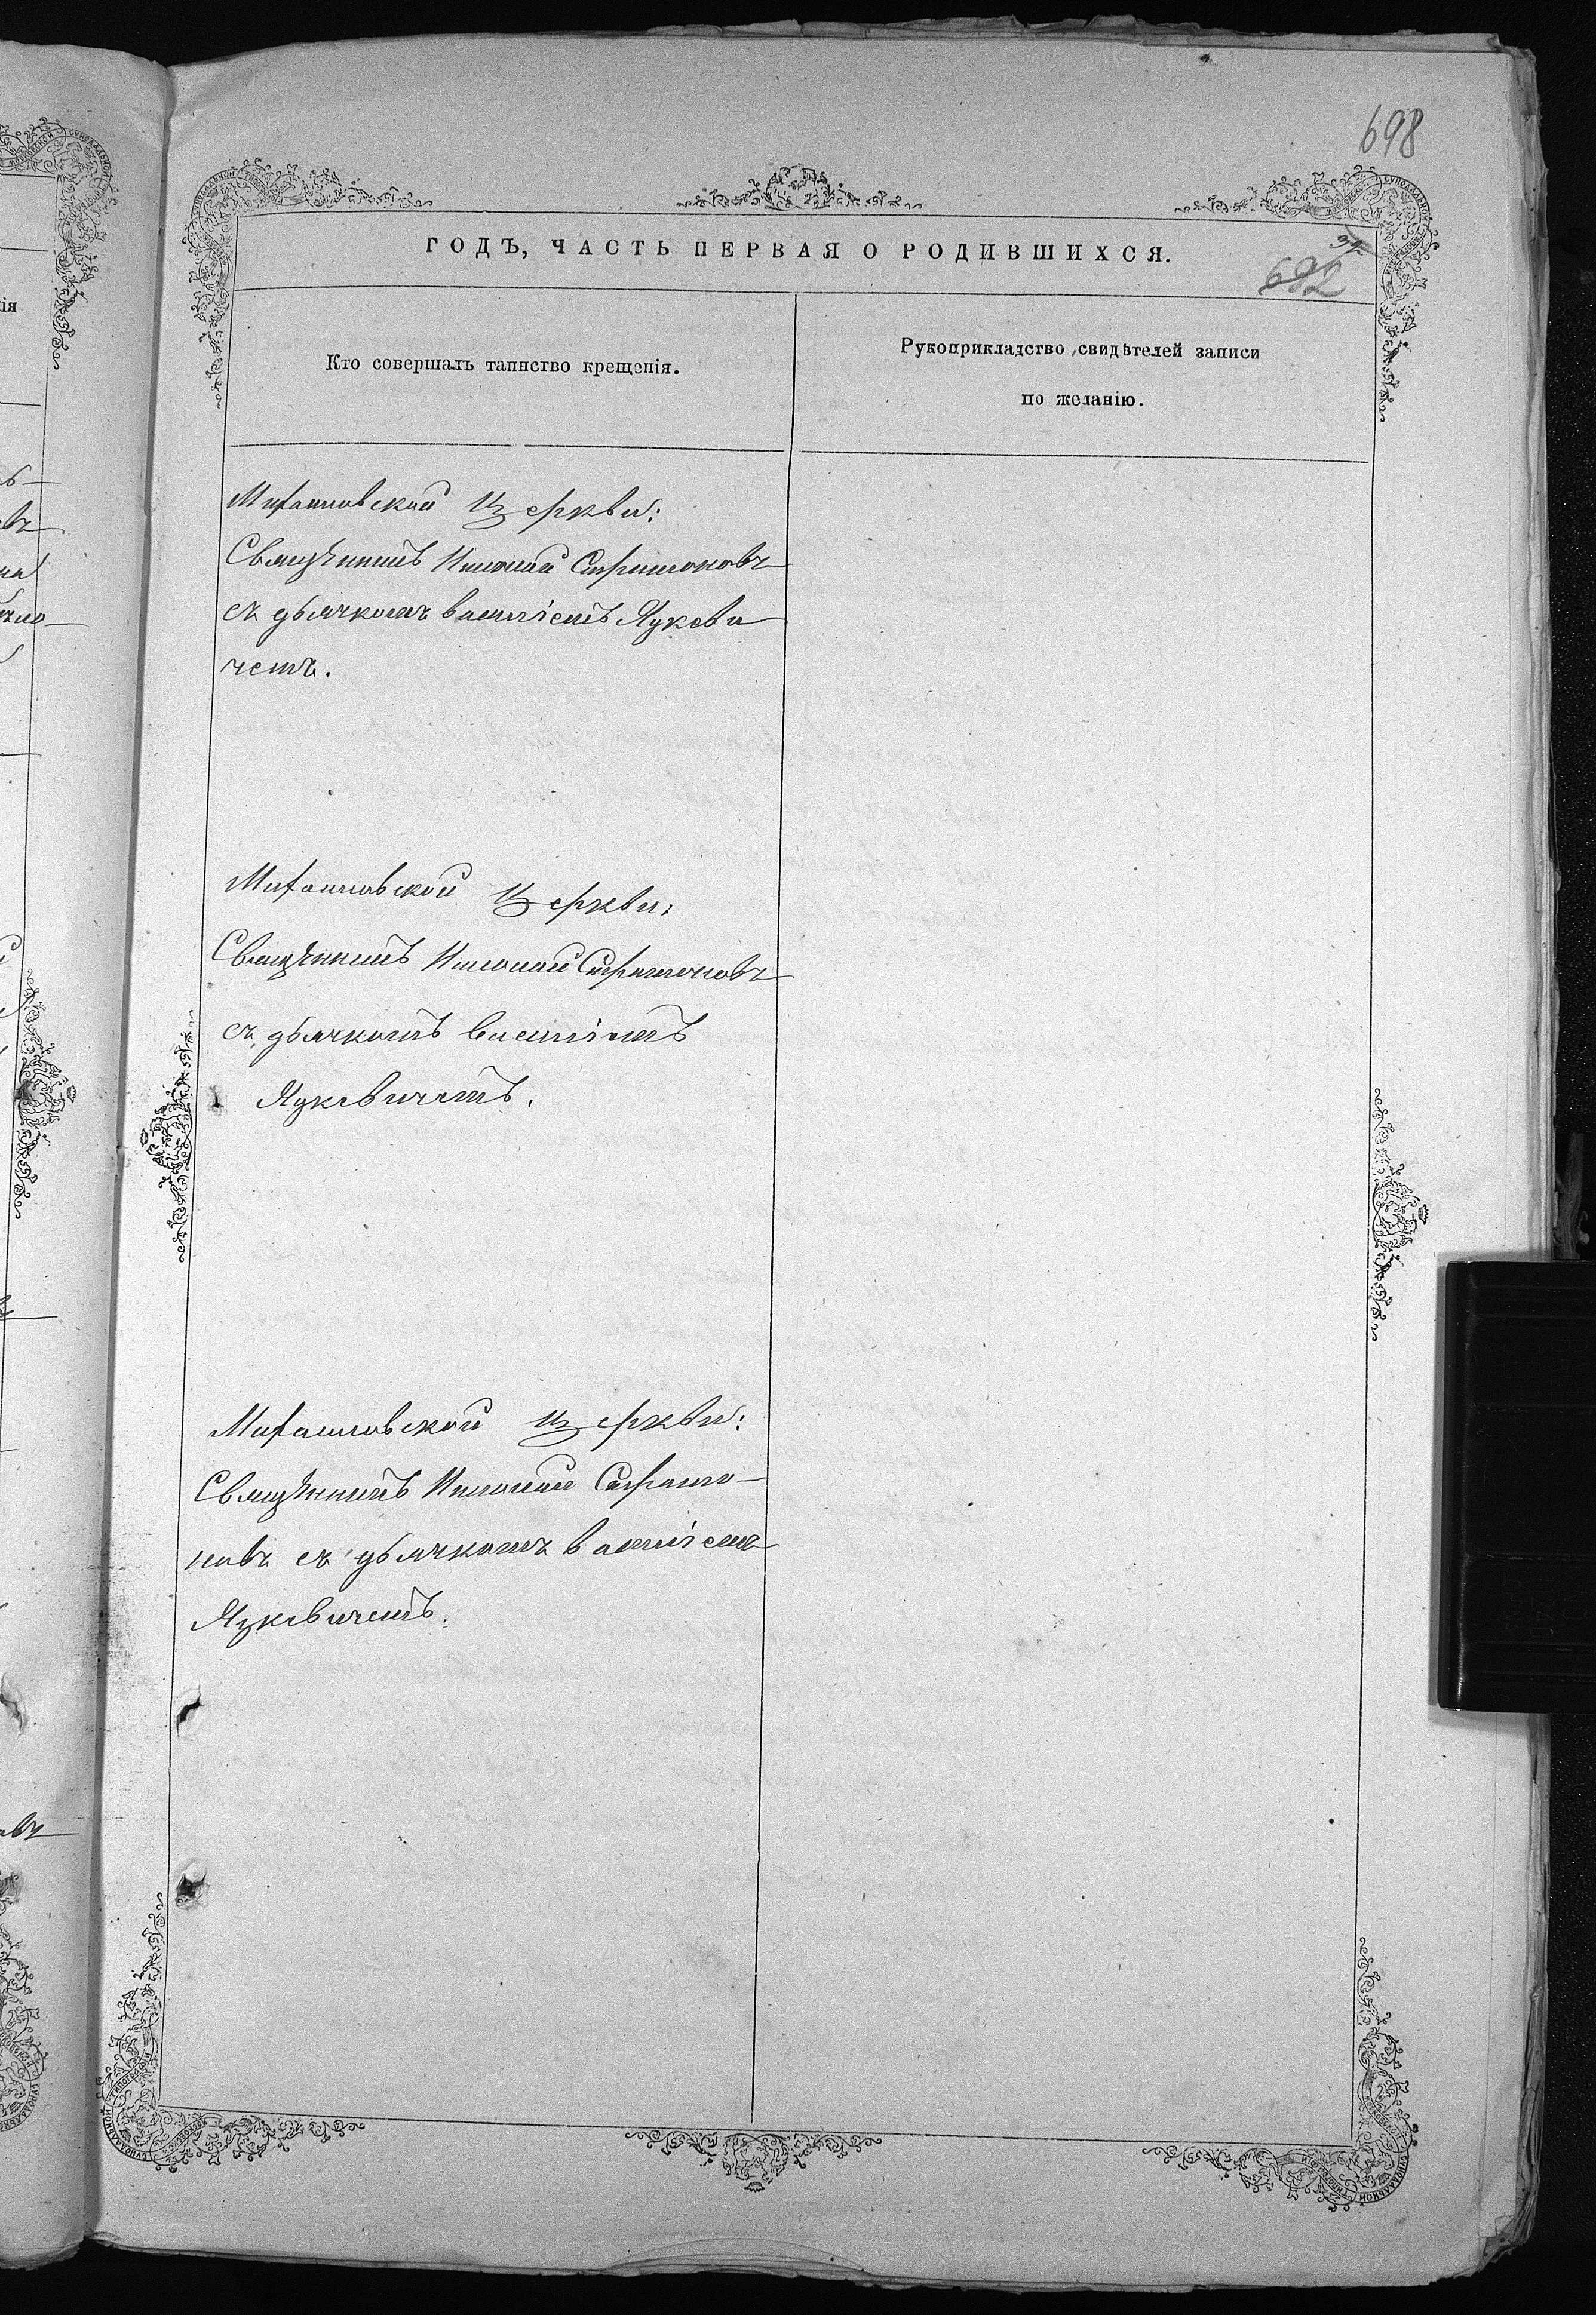 698
ГОДЪ, ЧАСТЬ ПЕРВАЯ О РОДИВШИХСЯ.
692
Кто совершалъ таинство крещенія.
Рукоприкладство свидѣтелей записи
по желанію.
Михаиловской Церкви:
Священникъ Николай
съ дьячкомъ Василіемъ Яукеви
чемъ.
Михаиловской Церкви:
Священникъ Николай
съ дьячкомъ Василіемъ
Яукевичемъ.
Михаиловской Церкви:
Священникъ Николай
новъ съ дьячкомъ Василіемъ
Яукевичемъ.